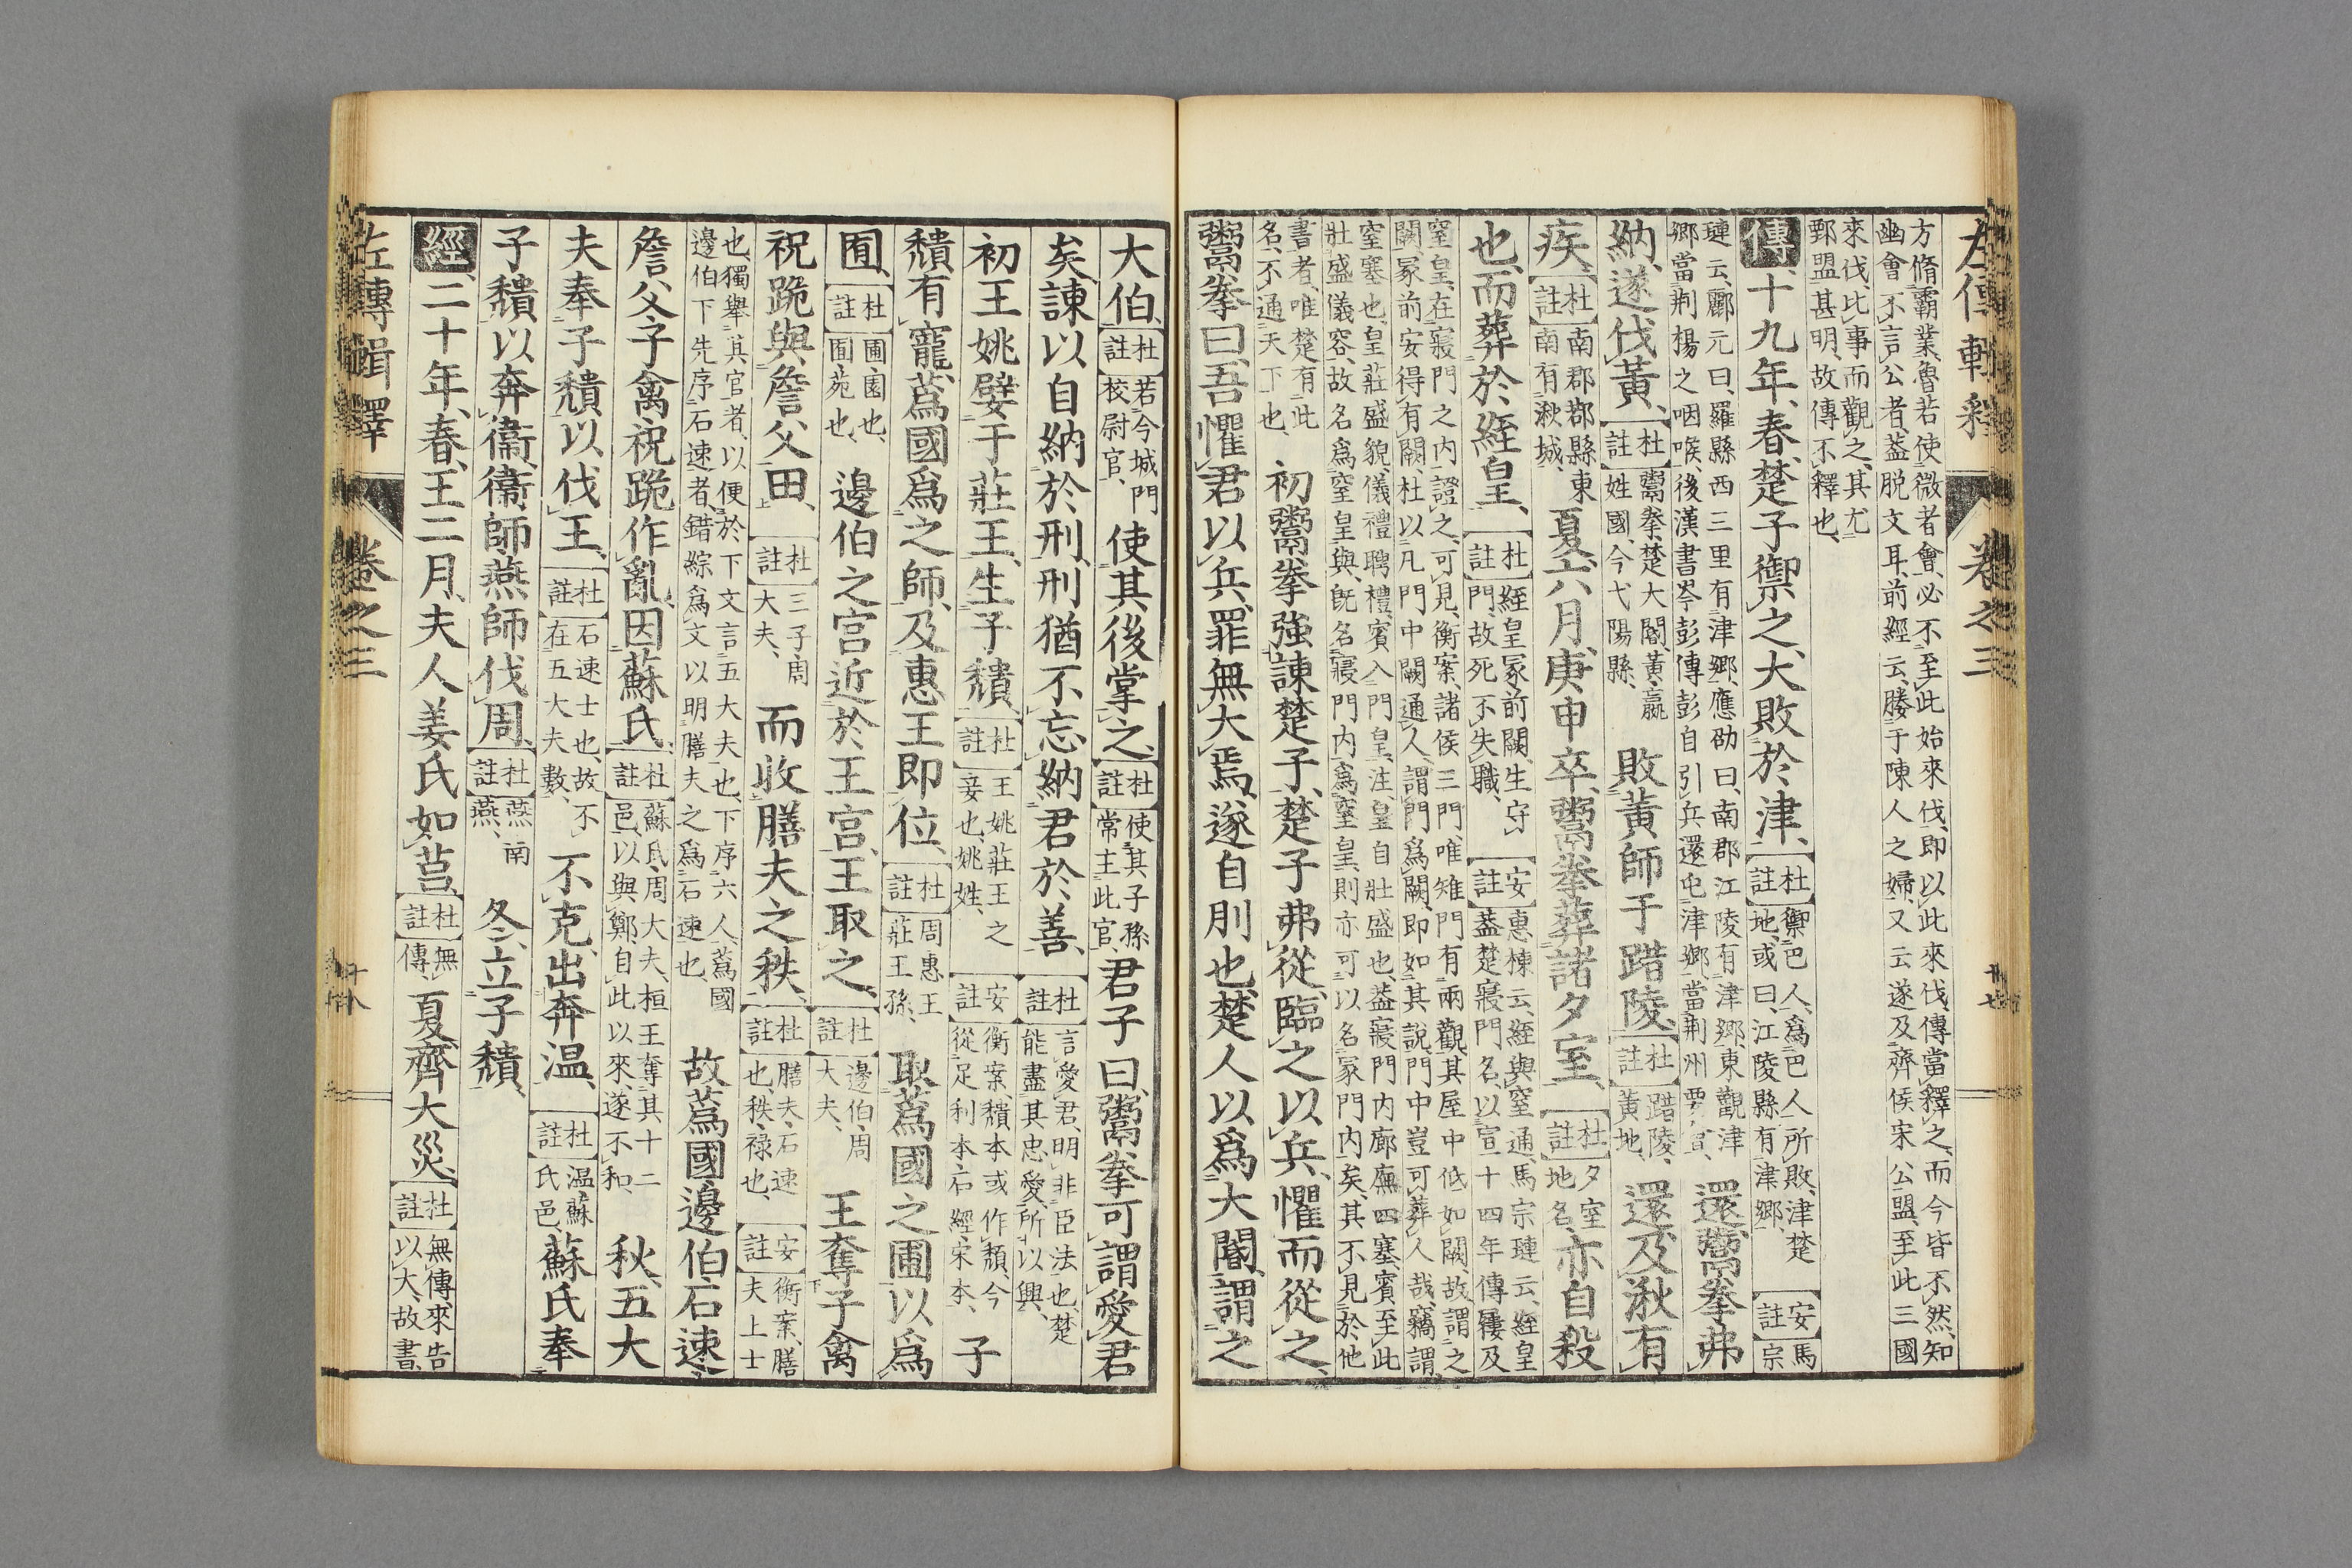 左傳輯釋 卷之三 廿七
方脩霸業、魯若使微者會、必不至此始來伐、即以此來伐、傳當釋之、而今皆不然、知
幽會不言公者、蓋脱文耳、前經云、滕于陳人之婦、又云遂及齊侯宋公盟、至此三國
來伐、比事而觀之、其尤
鄄盟甚明、故傳不釋也、
傳十九年、春、楚子禦之、大敗於津、杜註 禦巴人、爲巴人所敗、津楚地、或曰、江陵縣有津鄉、安註 馬宗
璉云、酈元曰、羅縣西三里有津鄉、應劭曰、南郡江陵有津鄉、東觀津
鄉當荆楊之咽喉、後漢書岑彭傳彭自引兵還屯津鄉、當荆州要會、還鬻拳弗
納、遂伐黃、杜註 鬻拳、楚大閽、黃、嬴姓國、今弋陽縣、敗黃師于踖陵、杜註 踖陵、黃地、還及湫有
疾、杜註 南郡鄀縣東南有湫城、夏六月、庚申卒、鬻拳葬諸夕室、杜註 夕室地名、亦自殺
也、而葬於絰皇、杜註 絰皇、冢前闕、生守門、故死不失職、安註 惠棟云、絰與窒通、馬宗璉云、絰皇蓋楚寢門名、以宣十四年傳屨及
窒皇、在寢門之内證之、可見、衡案、諸侯三門、唯雉門有兩觀、其屋中低如闕、故謂之
闕、冢前安得有闕、杜以凡門中闕通人、謂門爲闕、即如其説、門中豈可葬人哉、竊謂、
窒塞也、皇、莊盛貌、儀禮聘禮、賓入門皇、注、皇自壯盛也、蓋寢門内廊廡四塞、賓至此
壯盛儀容、故名爲窒皇與、既名寢門内爲窒皇、則亦可以名冢門内矣、其不見於他
書者、唯楚有此
名、不通天下也、初鬻拳強諫楚子、楚子弗從、臨之以兵、懼而從之、
鬻拳曰、吾懼君以兵、罪無大焉、遂自刖也、楚人以爲大閽、謂之
大伯、杜註 若今城門校尉官、使其後掌之、杜註 使其子孫常主此官、君子曰、鬻拳可謂愛君
矣、諫以自納於刑、刑猶不忘納君於善、杜註 言愛君、明非臣法也、楚能盡其忠愛、所以興、
初王姚嬖于莊王、生子頹、杜註 王姚莊王之妾也、姚姓、安註 衡案、頹本或作穨、今從足利本石經宋本、子
頹有寵、蒍國爲之師、及惠王即位、杜註 周惠王莊王孫、取蒍國之圃以爲
囿、杜註 圃、園也、囿、苑也、邊伯之宮近於王宮、王取之、杜註 邊伯、周大夫、王奪子禽
祝跪與詹父田、杜註 三子周大夫、而收膳夫之秩、杜註 膳夫、石速也、秩、禄也、安註 衡案、膳夫上士
也、獨舉其官者、以便於下文言五大夫也、下序六人、蒍國
邊伯下先序石速者、錯綜爲文以明膳夫之爲石速也、故蒍國、邊伯、石速、
詹父、子禽、祝跪作亂、因蘇氏、杜註 蘇氏、周大夫、桓王奪其十二邑、以與鄭、自此以來、遂不和、秋、五大
夫奉子頹以伐王、杜註 石速士也、故不在五大夫數、不克、出奔温、杜註 温、蘇氏邑、蘇氏奉
子頹以奔衞、衞師燕師伐周、杜註 燕、南燕、冬、立子頹、
經二十年、春、王二月、夫人姜氏如莒、杜註 無傳、夏、齊大災、杜註 無傳、來告以大、故書、
左傳輯釋 卷之三 廿八